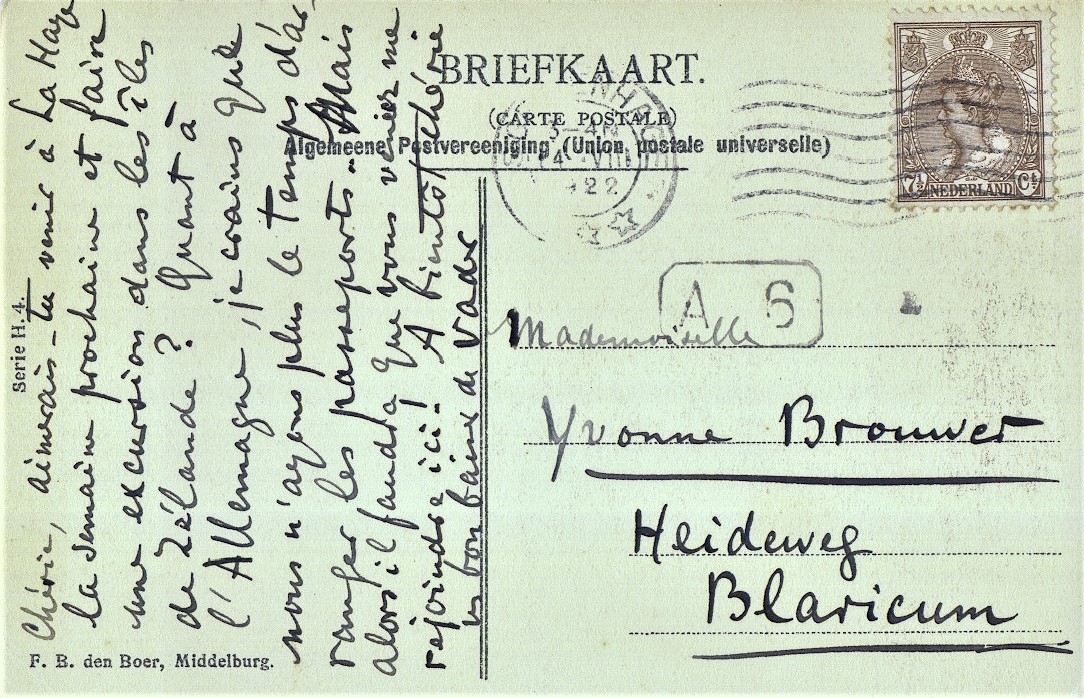 BRIEFKAART.
(CARTE POSTALE)
Algemeene Postvereeniging (Union postale universelle)
NHAG
3-4N
4 VIII
1922
7½ NEDERLAND Ct
A 6
Mademoiselle
Yvonne Brouwer
Heideweg
Blaricum
Chérie, aimerais-tu venir à La Haye
la semaine prochaine et faire
une excursion dans les îles
de Zélande? Quant à
l'Allemagne, je crains que
nous n'ayons plus le temps d'ar-
ranger les passeports.. Mais
alors il faudra que vous veniez me
rejoindre ici! A bientôt chérie
un bon baiser de Vader
Serie H. 4.
F. B. den Boer, Middelburg.